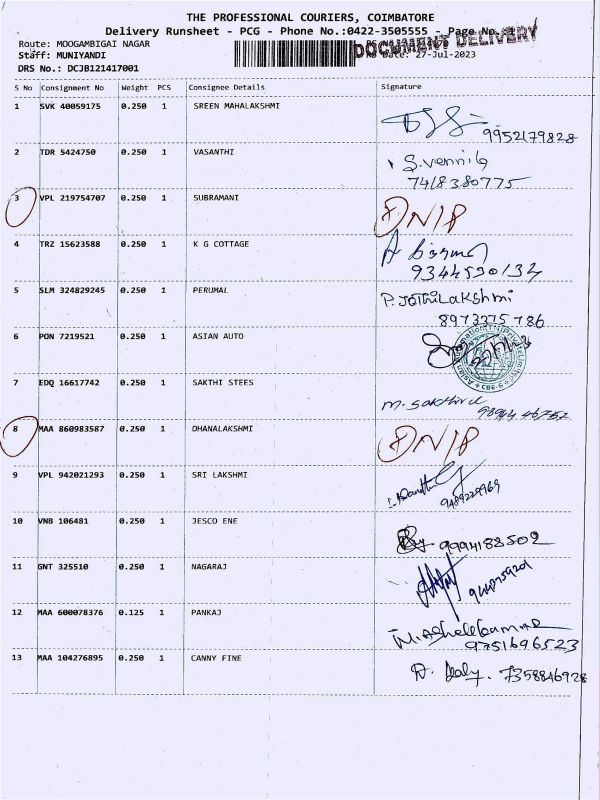 THE PROFESSIONAL COURIERS, COIMBATORE
Delivery Runsheet - PCG - Phone No.:0422-3505555 - Page No. 1
DOCUMENT DELIVERY
Route: MOOGAMBIGAI NAGAR
Staff: MUNIYANDI
Date: 27-Jul-2023
DRS No.: DCJB121417001
S No Consignment No Weight PCS Consignee Details Signature
1 SVK 40059175 0.250 1 SREEN MAHALAKSHMI
9952179828
2 TDR 5424750 0.250 1 VASANTHI S.vennila
7418380775
3 VPL 219754707 0.250 1 SUBRAMANI DN/P
4 TRZ 15623588 0.250 1 K G COTTAGE
9344530134
5 SLM 324829245 0.250 1 PERUMAL P.JOTHILAKSHMI
8973375786
6 PON 7219521 0.250 1 ASIAN AUTO
7 EDQ 16617742 0.250 1 SAKTHI STEES
M. Sakthivel 98944 46752
8 MAA 860983587 0.250 1 DHANALAKSHMI DN/P
9 VPL 942021293 0.250 1 SRI LAKSHMI
9489229969
10 VNB 106481 0.250 1 JESCO ENE
9994188502
11 GNT 325510 0.250 1 NAGARAJ
12 MAA 600078376 0.125 1 PANKAJ
9751696523
13 MAA 104276895 0.250 1 CANNY FINE
7358846928